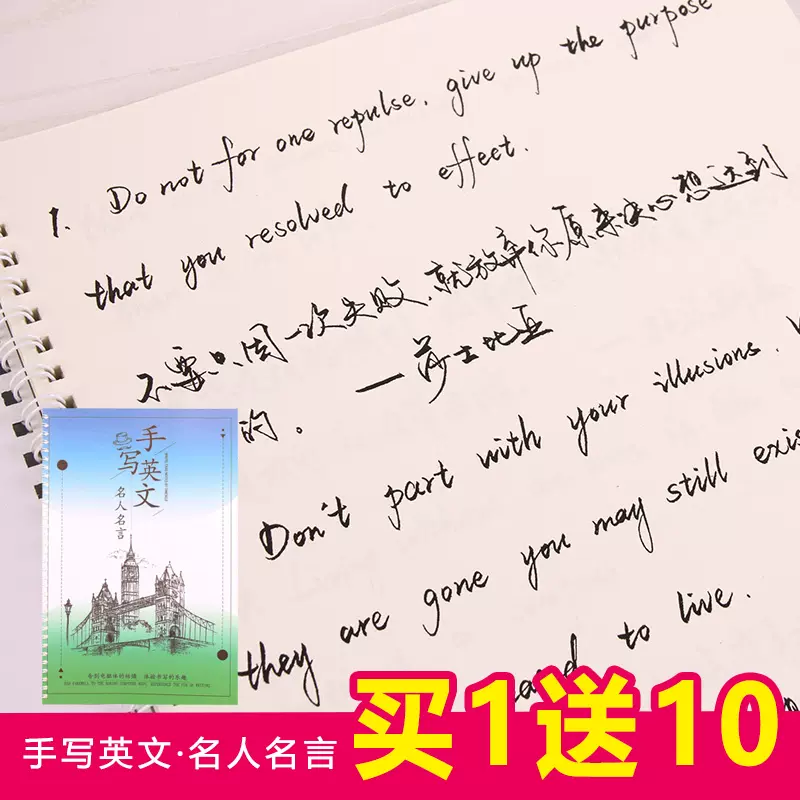 1. Do not for one repulse, give up the purpose
that you resolved to effect.
不要只因一次失败,就放弃你原来决心想达到
的。 —莎士比亚
Don't part with your illusions.
they are gone you may still exis
to live.
手写英文
名人名言
告别电脑体的枯燥 体验书写的乐趣
手写英文·名人名言
买1送10